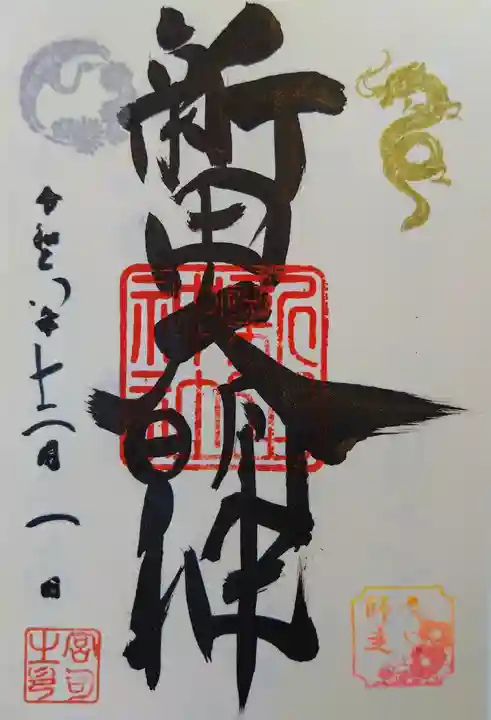 新田大明神
新田神社
令和六年十二月一日
師走
宮司之印